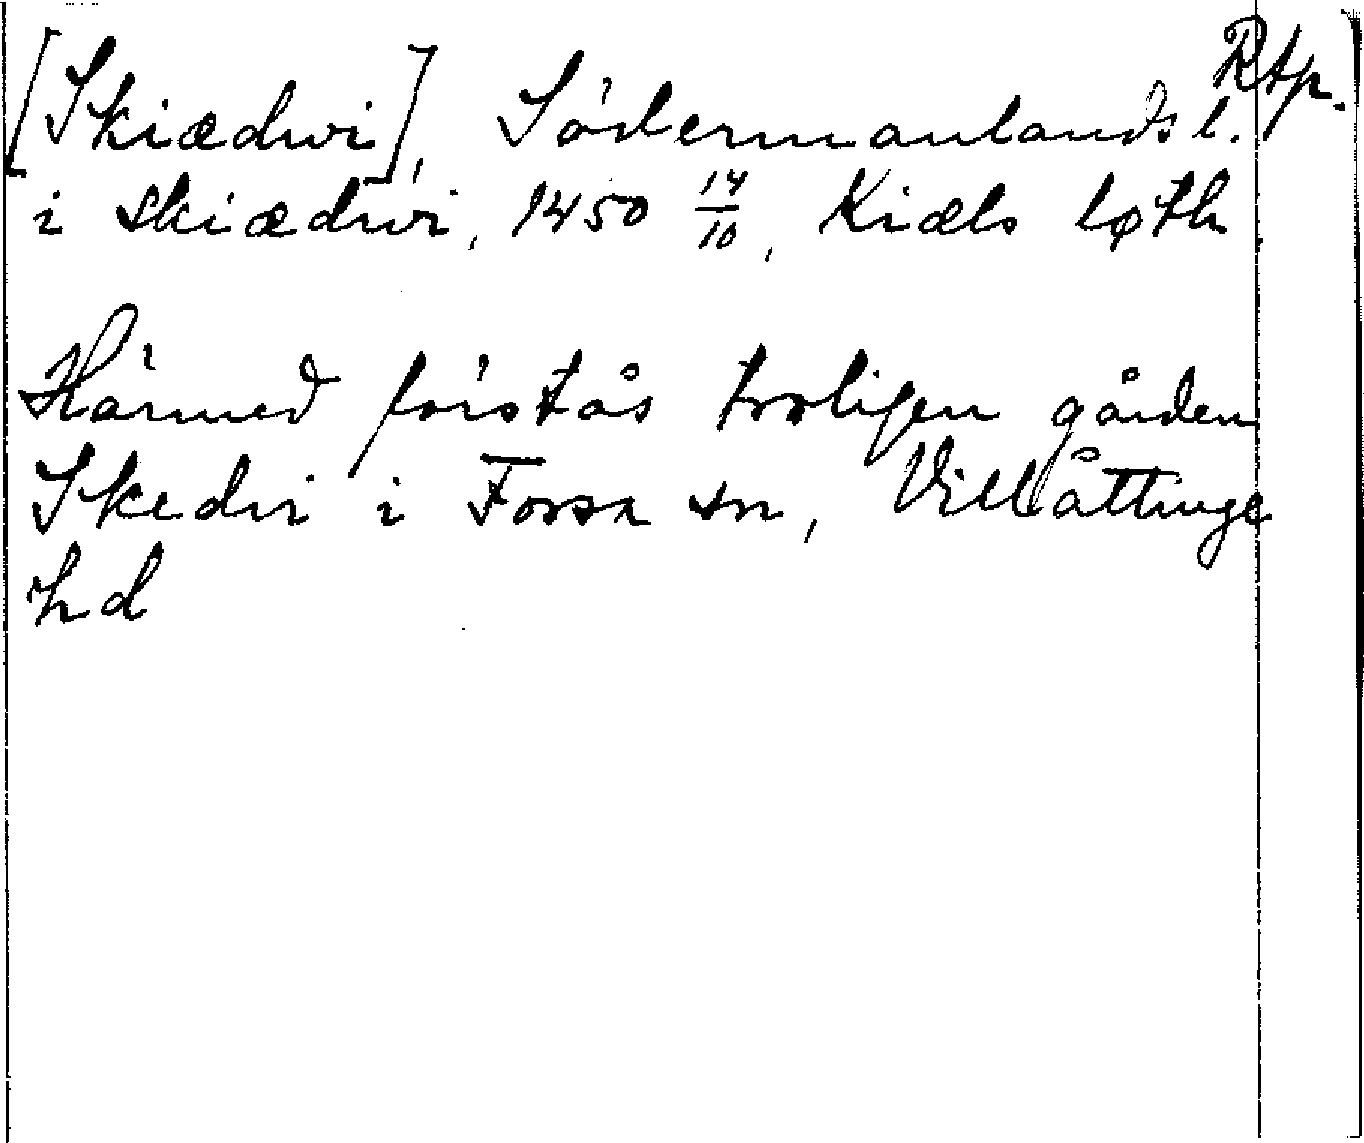 Rtp.
[Skiædwi], Södermanlands l.
i skiædwi, 1450 14/10, Kiæls løth.
Härmed förstås troligen gården
Skedvi i Forssa sn, Villåttinge
hd